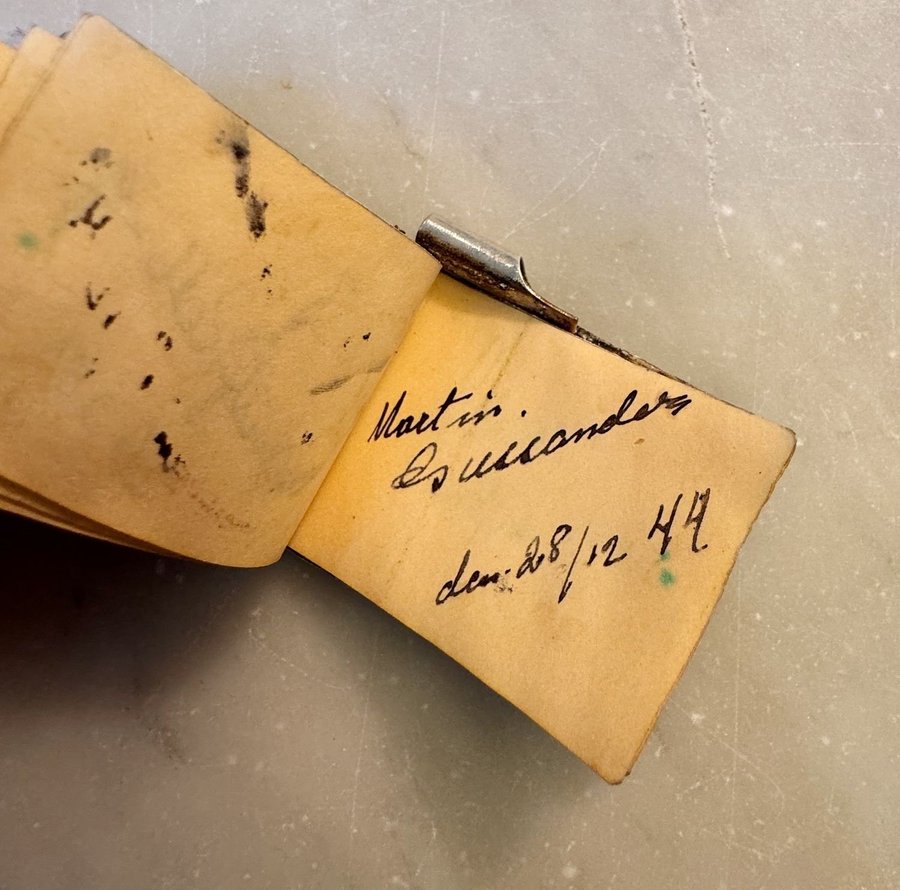 Martin.
den. 28/12 44